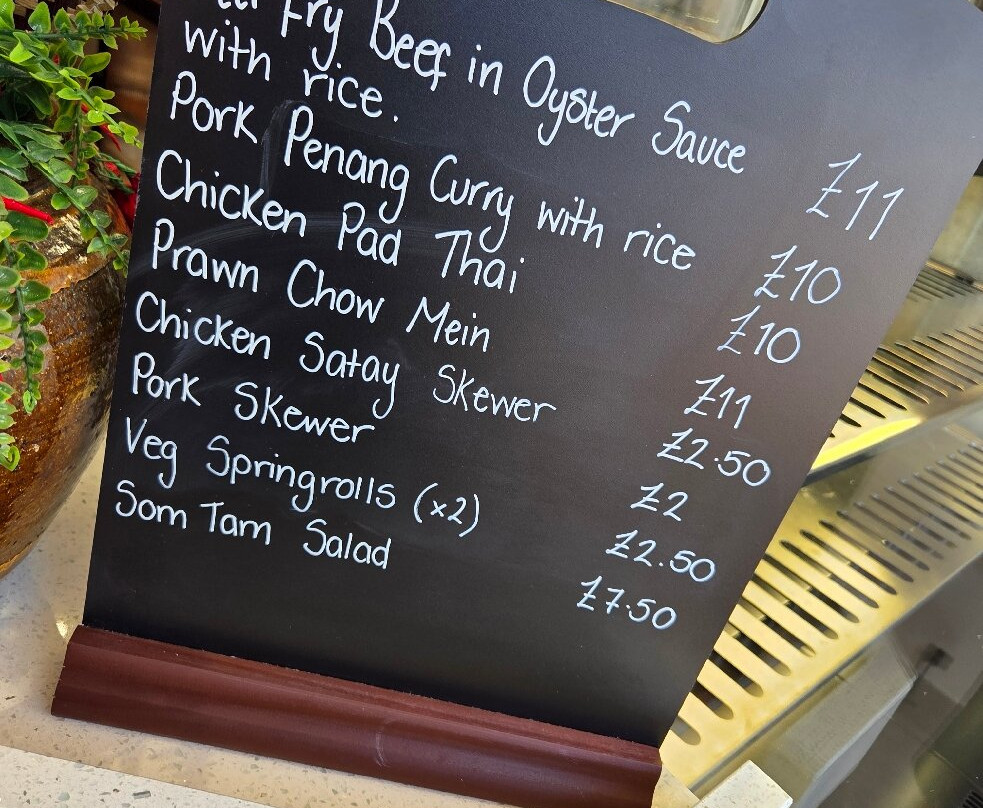 Fry Beef in Oyster Sauce
with rice. £11
Pork Penang Curry with rice £10
Chicken Pad Thai £10
Prawn Chow Mein £11
Chicken Satay Skewer £2.50
Pork Skewer £2
Veg Springrolls (x2) £2.50
Som Tam Salad £7.50